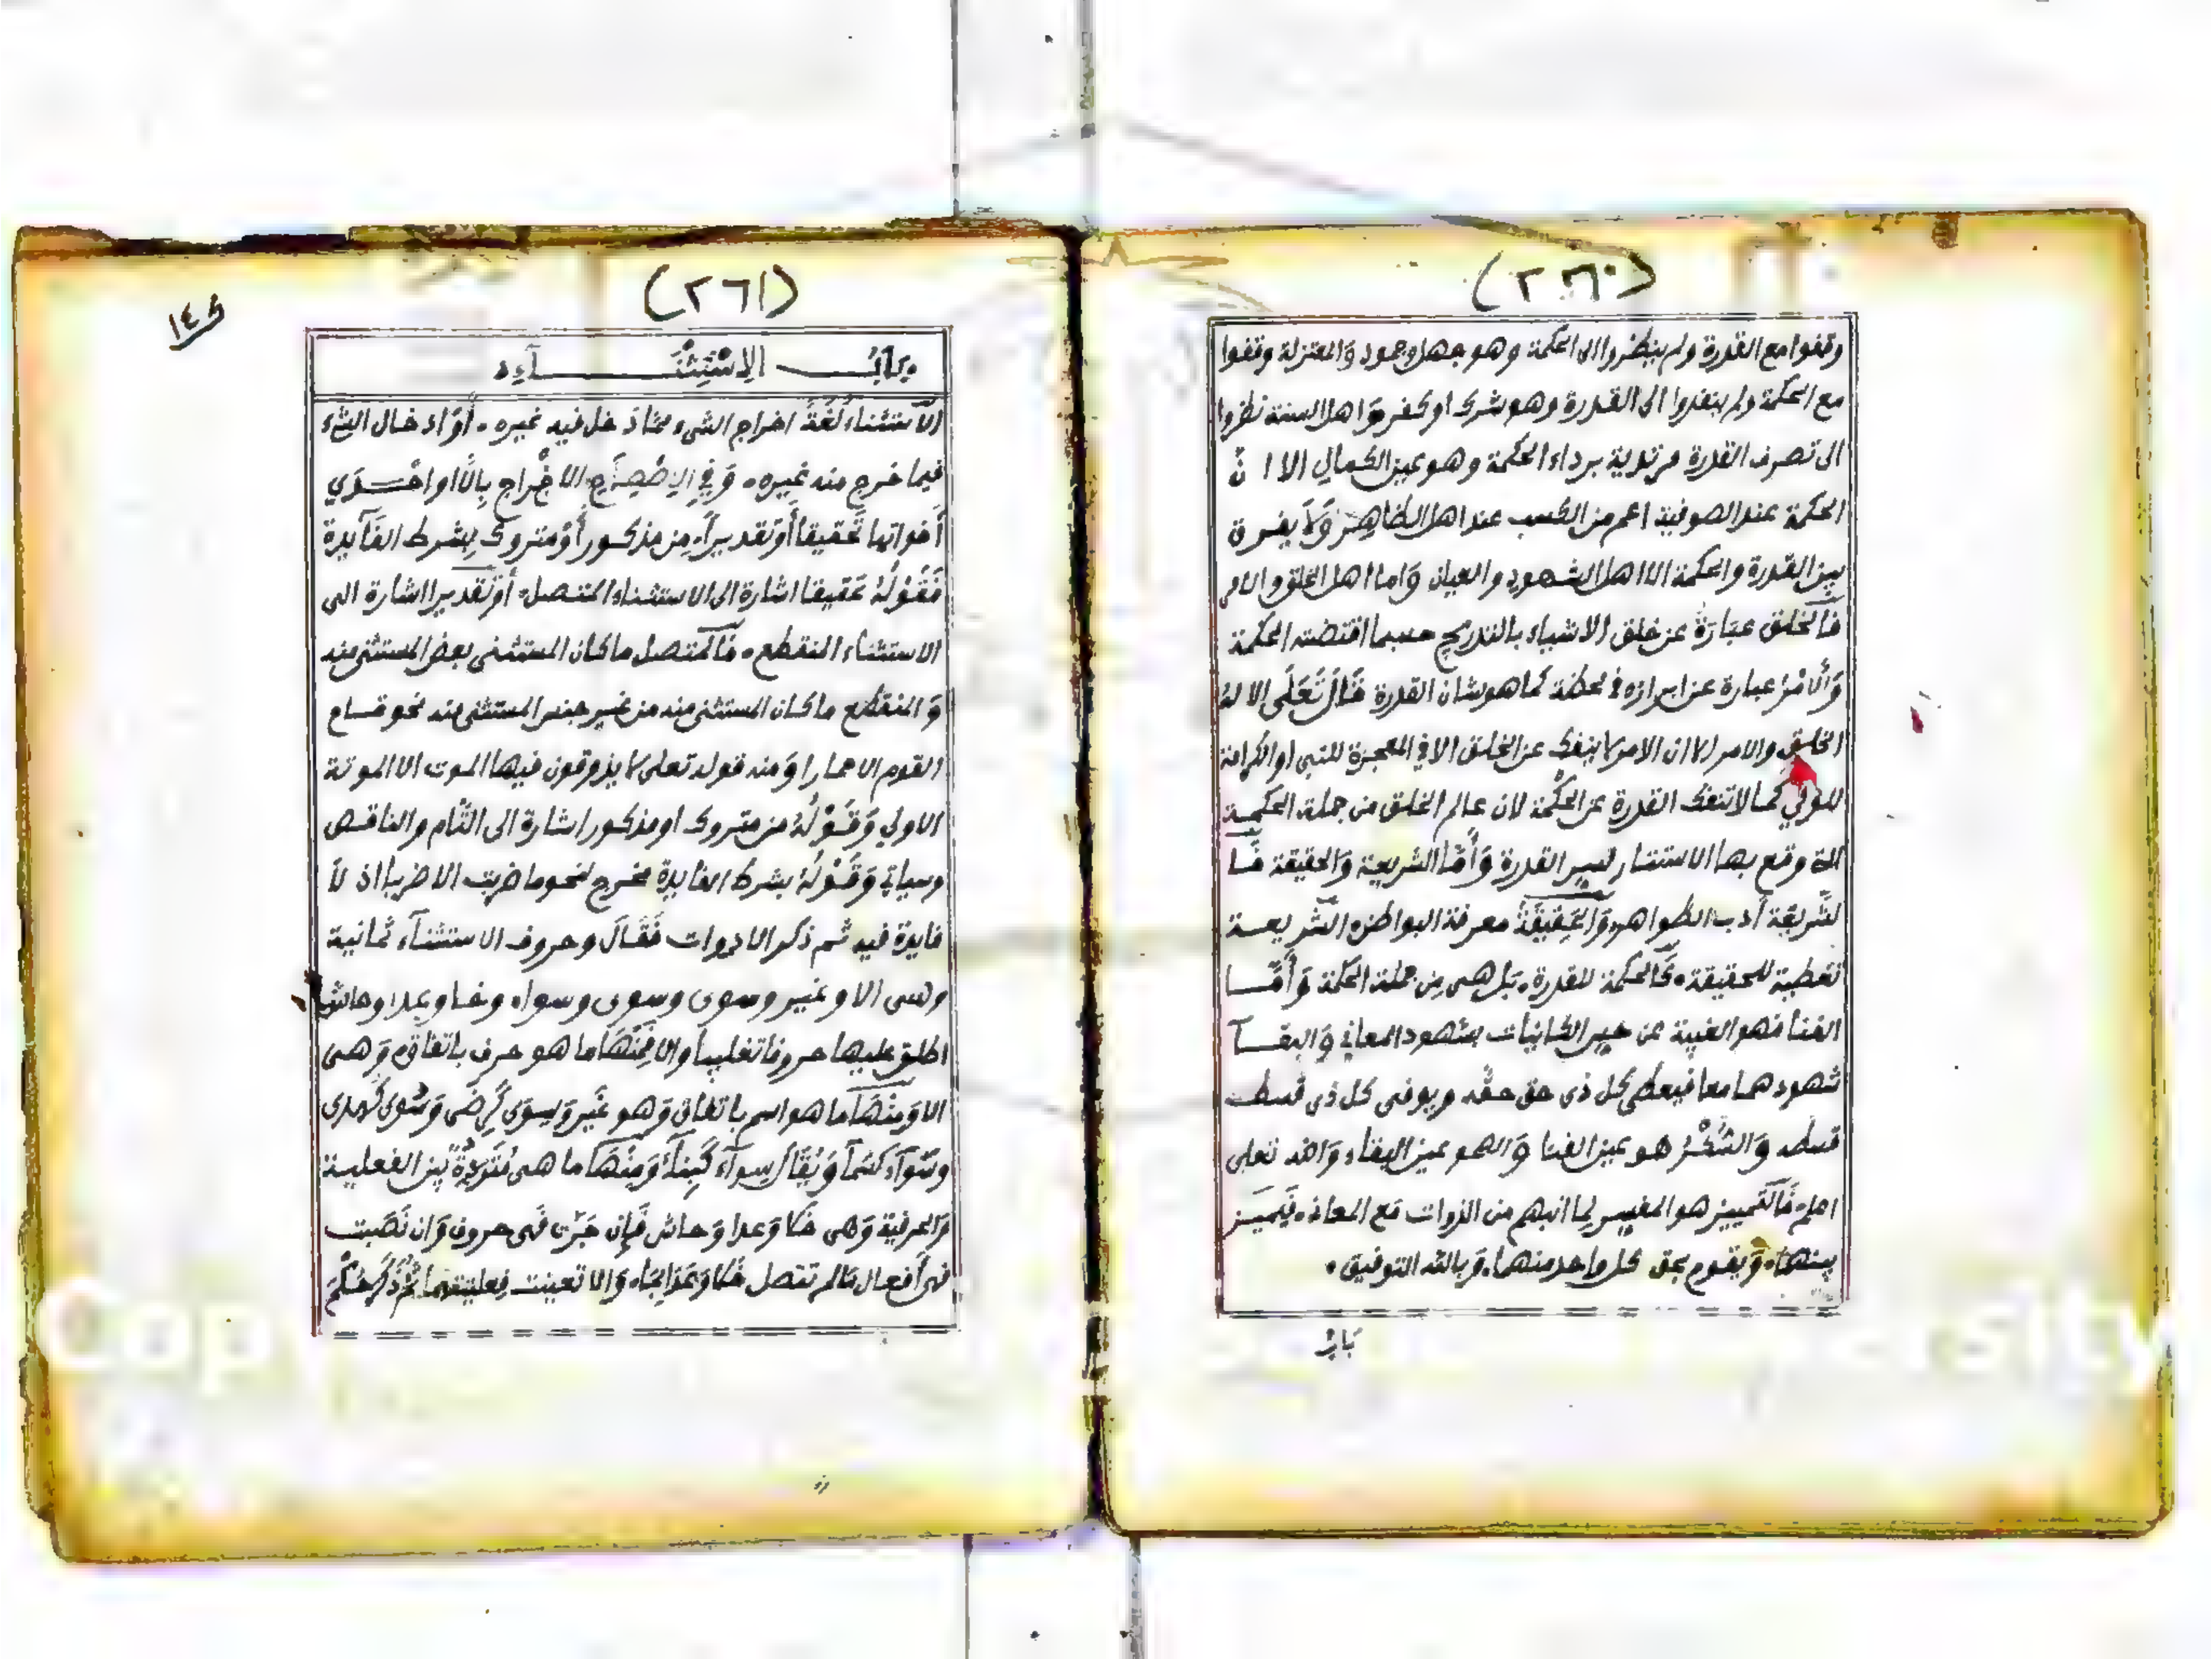 (٢٦٠)
وقفوا مع القدرة ولم ينظروا الى الحكمة وهو جهل وجمود وَالمعتزلة وقفوا
مع الحكمة ولم ينفذوا الى القدرة وهو شرك او كفر وَاهل السنة نظروا
الى تصرف القدرة مرتدية برداء الحكمة وهو عين الكمال الا ا نّ
الحكمة عند الصوفية اعم من الكسب عند اهل الظاهِر وَلاَ يفرق
بين القدرة والحكمة الا اهل الشهود والعيان وَاما اهل الخلق والامر
فَالخلق عبَارَة عن خلق الاشياء بالتدريج حسبما اقتضته الحكمة
وَالامْرُ عبارة عن ابرازه في لحظة كما هو شان القدرة قَالَ تَعَلَى الا لهُ
الخلق والامر الا ان الامر لا ينفك عن الخلق الا في المعجزة للنبي او الكرامة
للولي كما لا تنفك القدرة عن الحكْمة لان عالم الخلق من جملة الحكمة
التة وقع بها الاستتار لسر القدرة وَأمّا الشريعة وَالحقيقة فَا
لشّريعَة أدب الظواهر وَالحَقِيقَةُ معرفة البواطن الشّريعة
تغطية للحقيقة فَالحكمة للقدرة بَل هى مِن جملة الحكمة وَأمّا
الفنا فهو الغيبة عن حس الكاينات بشهود المعاني وَالبقآ
شهودهما معا فيعطى كل ذى حق حقه ويوفى كل ذى قسط
قسطه وَالسُّكْرُ هو عين الفنا وَالصحو عين البقاء وَالله تعلى
اعلم فَالتمييز هو المفسر لِما انبهم من الذوات مَع المعانى فيَميَز
بينهمَا وَيقوم بحق كل واحد منهما وَبالله التوفيق
بَابُ
(٢٦١)
بَابُ الِاسْتِثْنَآءِ
الاستثناء لُغَةً اخراج الشىء مما دَخل فيه غيره أوْ ادخال الشىء
فيما خرج منه غيره وَفي الِاصْطِلَاحِ الاخْراج بِالّا او احْدَي
أخواتها تَحقيقا أوْ تقديراً مِن مذكور أوْ متروك بِشرط الفَآيدة
فَقَوْلُهُ تحقيقا اشارة الى الاستثناء المتصل أوْ تَقديرا اشارة الى
الاستثناء المنقطع فَالمتصل ما كان المستثنى بعض المستثنى منه
وَالمنقطع ما كان المستثنى منه من غير جنس المستثنى منه نحو قام
القوم الا حمارا وَمنه قوله تعلى لا يذوقون فيها الموت الا الموتة
الاولي وَقَوْلُهُ من متروك او مذكور اشارة الى التّام والناقص
وسياتي وَقَوْلُهُ بشرط الفايدة مخرج لنحو ما ضربت الا ضربا اذ لاَ
فايدة فيه ثم ذكر الادوات فَقَالَ وحروف الاستثنآء ثمانية
وهى الا وغير وسوى وسوى وسواء وخلا وعدا وحاشا
اطلق عليها حروفا تغليبا والا فمنْهَا ما هو حرف باتفاق وَهى
الا وَمِنْهَا ما هو اسم باتفاق وَهو غَير وَسِوَى كَرِضَى وَسُوى كَهدى
وسَوآء كسَمآ وَيُقَالُ سِوآء كَبِنَآءٍ وَمِنْهَا ما هى مُترَدِدة بَين الفعلية
وَالحرفية وَهى خَلا وَعدا وَحاش فَإن جَرّت فَهى حروف وَان نَصَبت
فهى أفعال مَا لم تتصل خَلا وَعَدا بِمَا وَالا تعينت فِعليتهما ثُمّ ذَكَرَ حُكْمَ